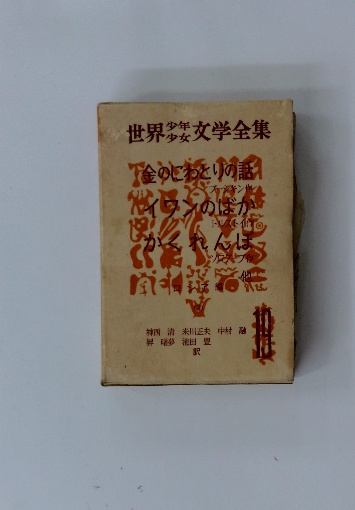 世界少年少女文学全集
金のにわとりの話
プーシキン作
イワンのばか
トルストイ作
かくれんぼ
ソログープ作
他
神西 清 米川正夫 中村 融
昇 曙夢 池田 豊
訳